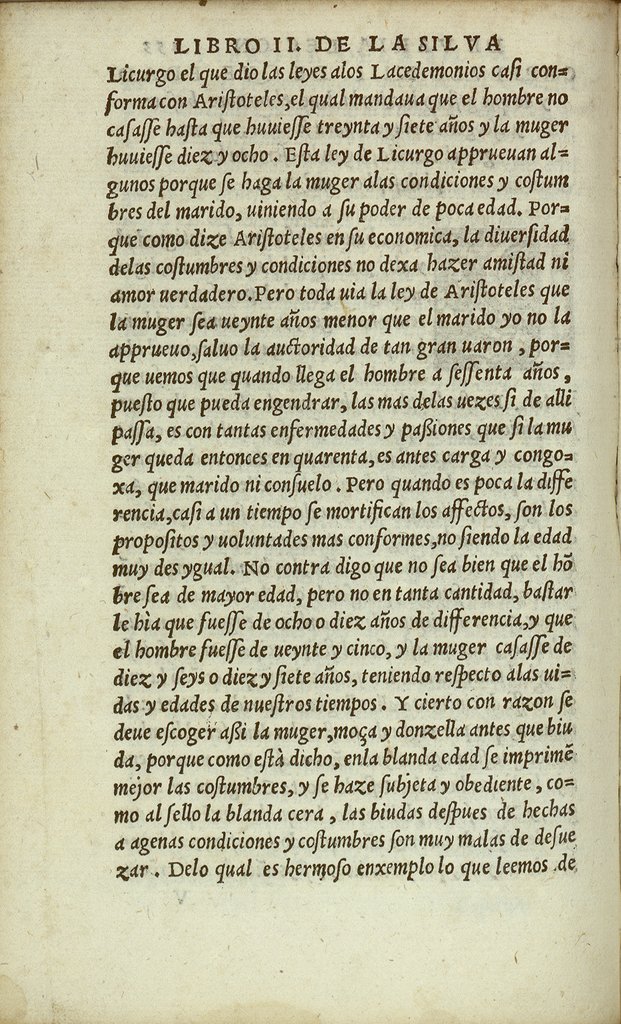 LIBRO II. DE LA SILVA
Licurgo el que dio las leyes alos Lacedemonios caſi con=
forma con Ariſtoteles,el qual mandaua que el hombre no
caſaſſe haſta que huuieſſe treynta y ſiete años y la muger
huuieſſe diez y ocho. Eſta ley de Licurgo apprueuan al=
gunos porque ſe haga la muger alas condiciones y coſtum
bres del marido, uiniendo a ſu poder de poca edad. Por=
que como dize Ariſtoteles en ſu economica, la diuerſidad
delas coſtumbres y condiciones no dexa hazer amiſtad ni
amor uerdadero.Pero toda uia la ley de Ariſtoteles que
la muger ſea ueynte años menor que el marido yo no la
apprueuo,ſaluo la auctoridad de tan gran uaron, por=
que uemos que quando llega el hombre a ſeſſenta años,
pueſto que pueda engendrar, las mas delas uezes ſi de alli
paſſa, es con tantas enfermedades y paßiones que ſi la mu
ger queda entonces en quarenta,es antes carga y congo=
xa, que marido ni conſuelo. Pero quando es poca la diffe
rencia,caſi a un tiempo ſe mortifican los affectos, ſon los
propoſitos y uoluntades mas conformes,no ſiendo la edad
muy des ygual. No contra digo que no ſea bien que el hõ
bre ſea de mayor edad, pero no en tanta cantidad, baſtar
le hìa que fueſſe de ocho o diez años de differencia,y que
el hombre fueſſe de ueynte y cinco, y la muger caſaſſe de
diez y ſeys o diez y ſiete años, teniendo reſpecto alas ui=
das y edades de nueſtros tiempos. Y cierto con razon ſe
deue eſcoger aßi la muger,moça y donzella antes que biu
da, porque como eſtà dicho, enla blanda edad ſe imprimẽ
mejor las coſtumbres, y ſe haze ſubjeta y obediente, co=
mo al ſello la blanda cera, las biudas deſpues de hechas
a agenas condiciones y coſtumbres ſon muy malas de deſue
zar. Delo qual es hermoſo enxemplo lo que leemos de